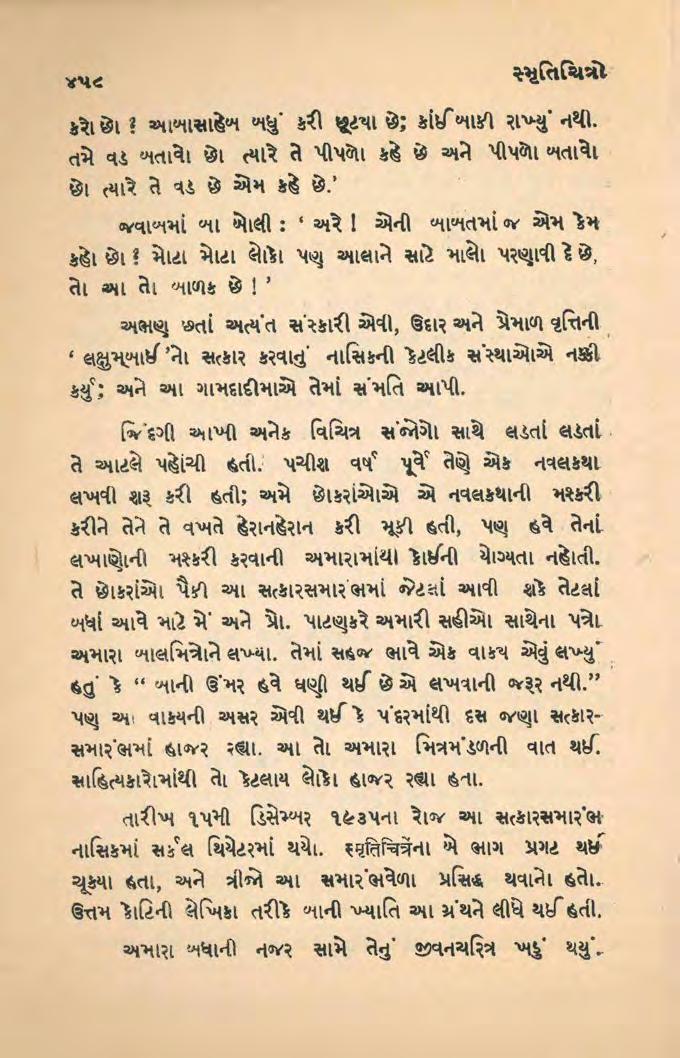 ૪૫૮
સ્મૃતિચિત્રો
કરો છો ? આબાસાહેબ બધું કરી છૂટ્યા છે; કાંઈ બાકી રાખ્યું નથી.
તમે વડ બતાવો છો ત્યારે તે પીપળો કહે છે અને પીપળો બતાવો
છો ત્યારે તે વડ છે એમ કહે છે.’
જવાબમાં બા બોલી : ‘ અરે ! એની બાબતમાં જ એમ કેમ
કહો છો ? મોટા મોટા લોકો પણ આલાને સાટે માલો પરણાવી દે છે,
તો આ તો બાળક છે ! ’
અભણ છતાં અત્યંત સંસ્કારી એવી, ઉદાર અને પ્રેમાળ વૃત્તિની
‘ લક્ષુમ્બાઈ ’નો સત્કાર કરવાનું નાસિકની કેટલીક સંસ્થાઓએ નક્કી
કર્યું; અને આ ગામદાદીમાએ તેમાં સંમતિ આપી.
જિંદગી આખી અનેક વિચિત્ર સંજોગો સાથે લડતાં લડતાં
તે આટલે પહોંચી હતી. પચીશ વર્ષ પૂર્વે તેણે એક નવલકથા
લખવી શરૂ કરી હતી; અમે છોકરાંઓએ એ નવલકથાની મશ્કરી
કરીને તેને તે વખતે હેરાનહેરાન કરી મૂકી હતી, પણ હવે તેનાં
લખાણોની મશ્કરી કરવાની અમારામાંથી કોઈની યોગ્યતા નહોતી.
તે છોકરાંઓ પૈકી આ સત્કારસમારંભમાં જેટલાં આવી શકે તેટલાં
બધાં આવે માટે મેં અને પ્રો. પાટણકરે અમારી સહીઓ સાથેના પત્રો
અમારા બાલમિત્રોને લખ્યા. તેમાં સહજ ભાવે એક વાક્ય એવું લખ્યું
હતું કે “ બાની ઉંમર હવે ઘણી થઈ છે એ લખવાની જરૂર નથી.”
પણ આ વાક્યની અસર એવી થઈ કે પંદરમાંથી દસ જણા સત્કાર-
સમારંભમાં હાજર રહ્યા. આ તો અમારા મિત્રમંડળની વાત થઈ.
સાહિત્યકારોમાંથી તો કેટલાય લોકો હાજર રહ્યા હતા.
તારીખ ૧૫મી ડિસેમ્બર ૧૯૩૫ના રોજ આ સત્કારસમારંભ
નાસિકમાં સર્કલ થિયેટરમાં થયો. स्मृतिचित्रेंના બે ભાગ પ્રગટ થઈ
ચૂક્યા હતા, અને ત્રીજો આ સમારંભવેળા પ્રસિદ્ધ થવાનો હતો.
ઉત્તમ કોટિની લેખિકા તરીકે બાની ખ્યાતિ આ ગ્રંથને લીધે થઈ હતી.
અમારા બધાની નજર સામે તેનું જીવનચરિત્ર ખડું થયું.